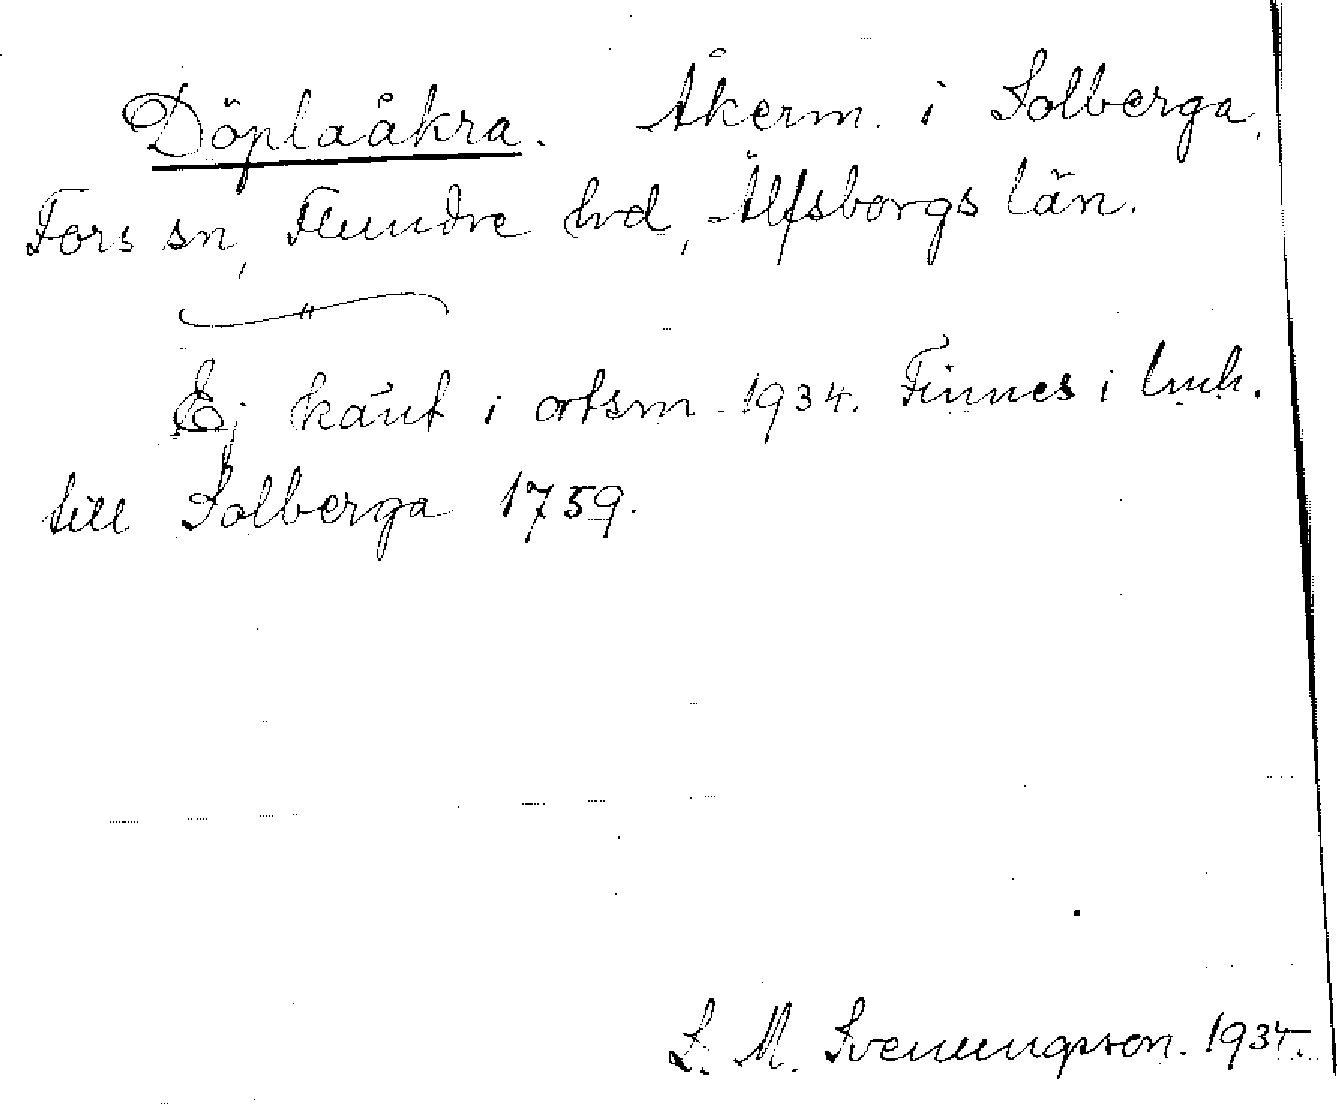 Döplaåkra. Åkerm. i Solberga,
Fors sn, Flundre hd, Älfsborgs län.
"
Ej känt i ortsm. 1934. Finnes i lmh.
till Solberga 1759.
L. M. Svenungsson. 1934.